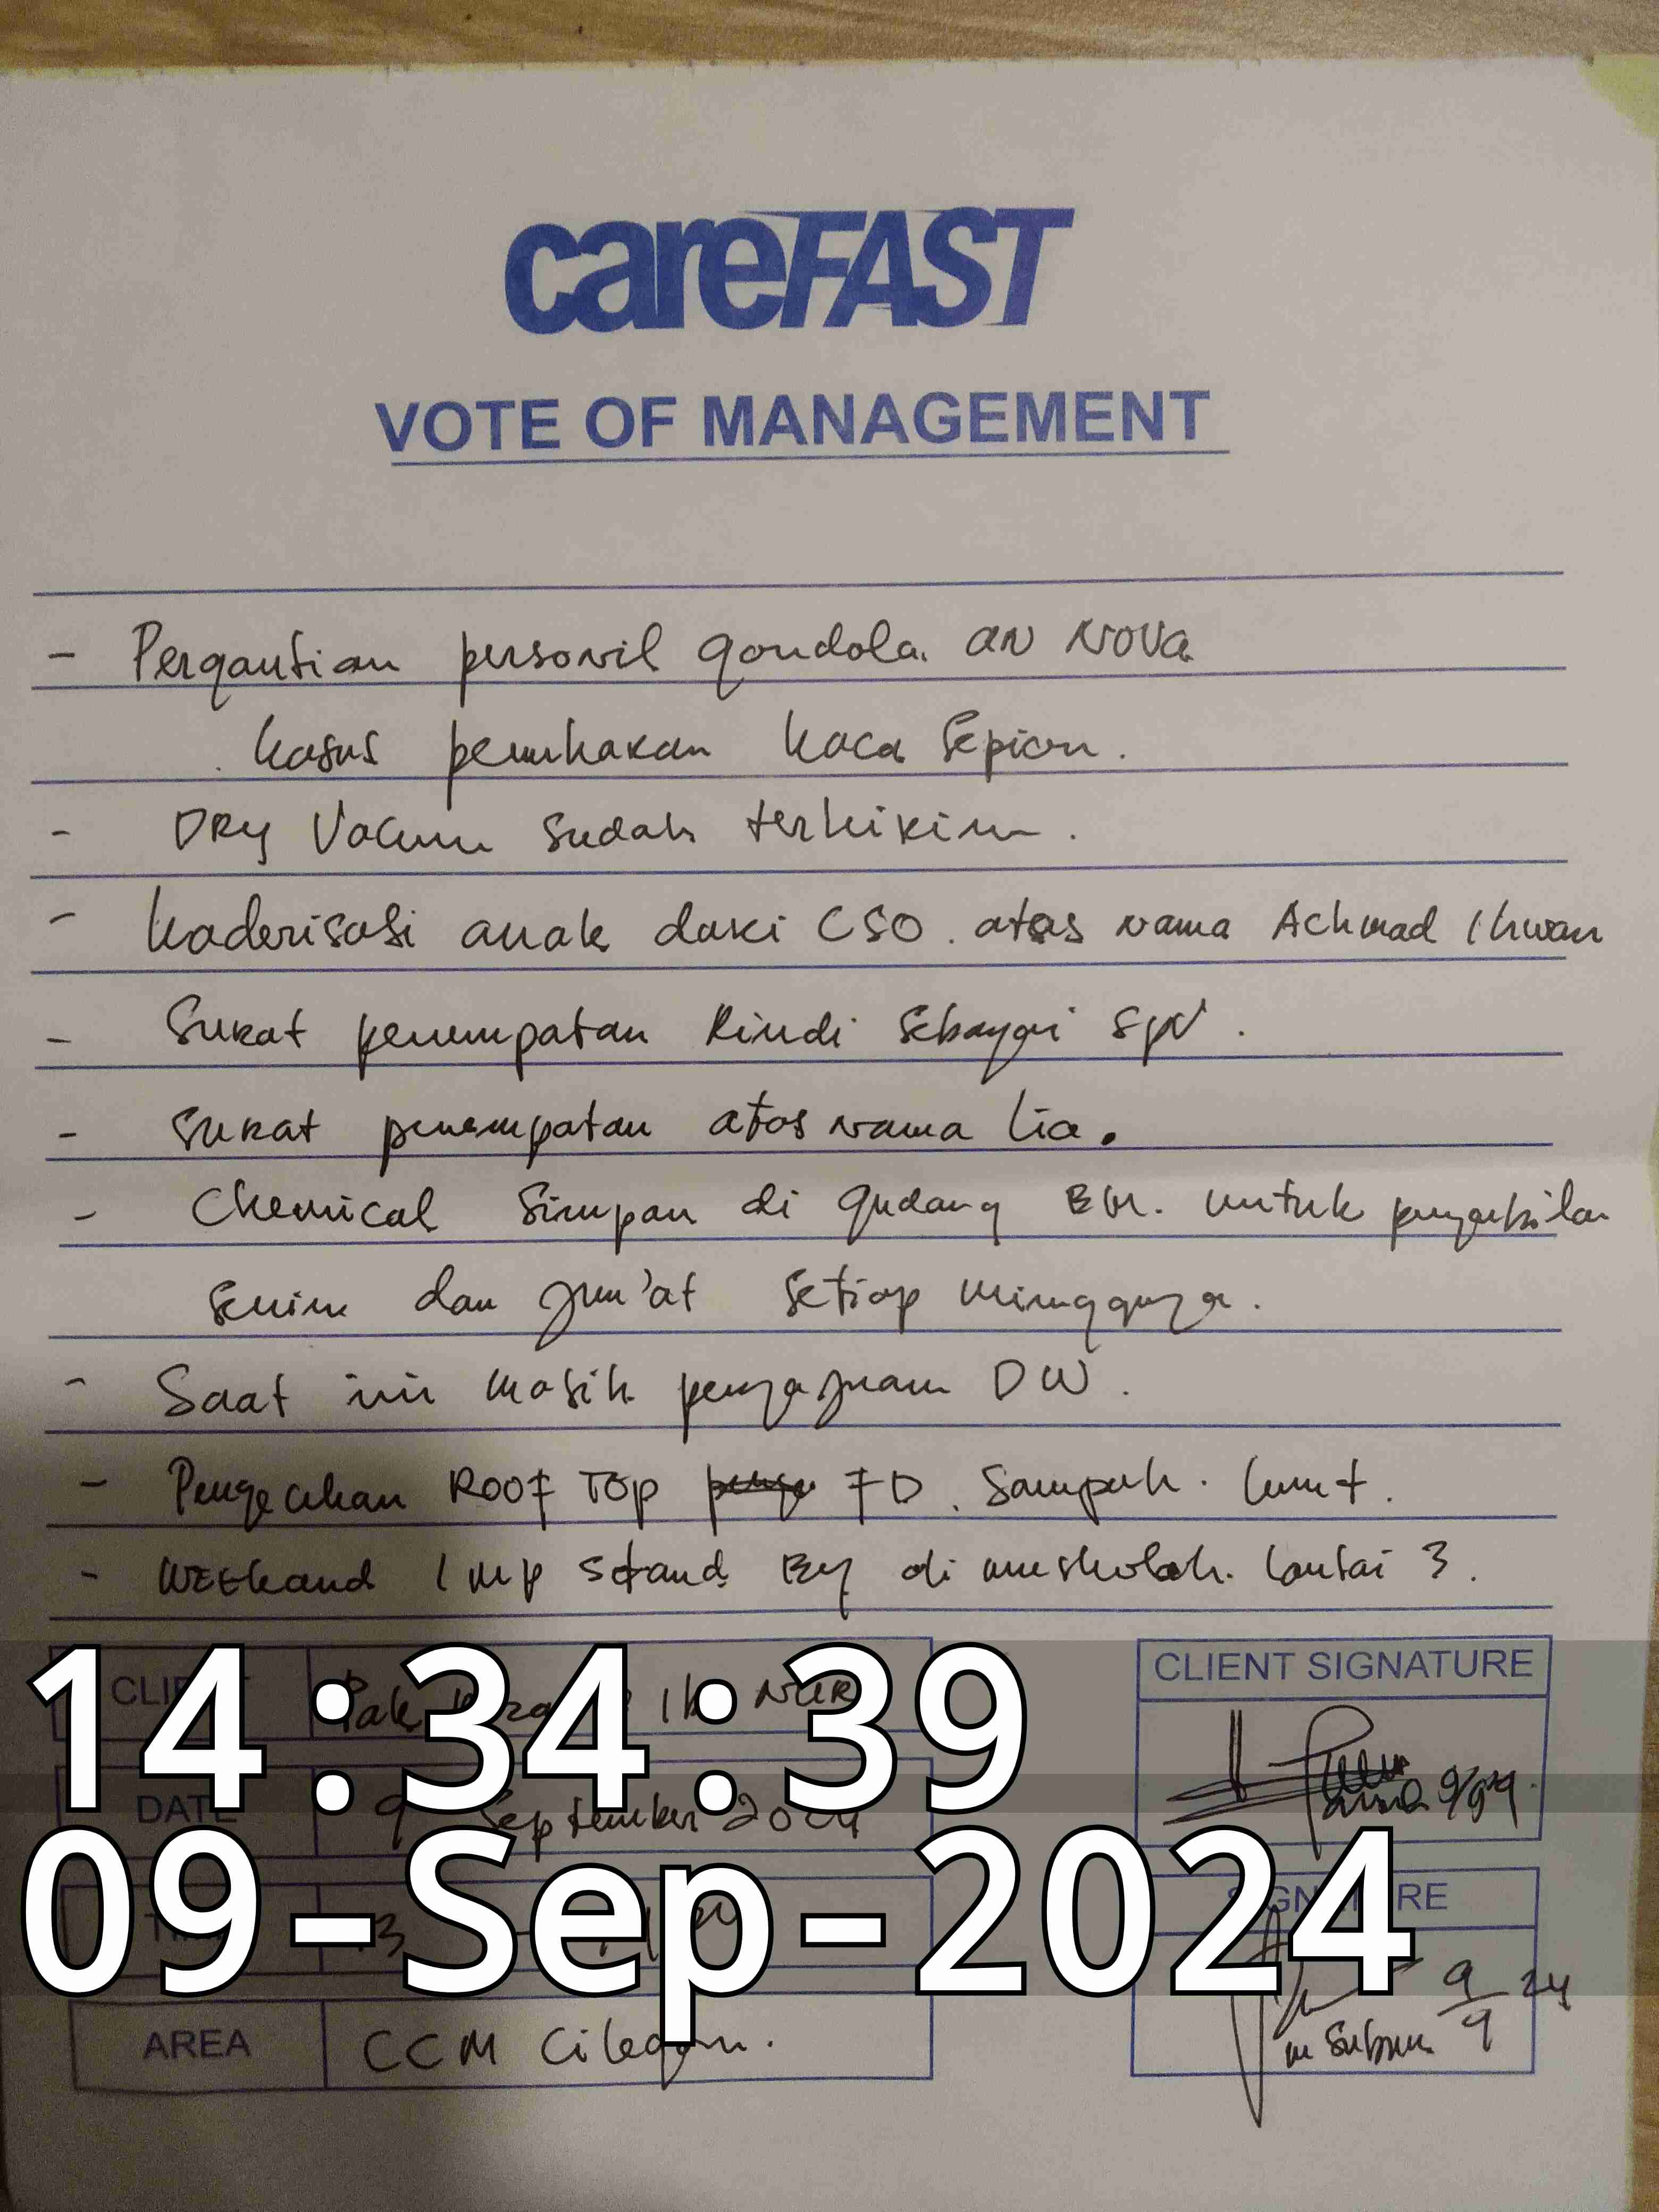 careFAST
VOTE OF MANAGEMENT
- Pergantian personil gondola. an Nova
kasus pemukaan kaca Spion.
- DRy Vacum sudah terkirim.
- Kaderisasi anak dari CSO. atas nama Achmad Ikwan
- Surat penempatan Rindi Sebagai Spv.
- Surat penempatan atas nama Lia.
- Chemical Simpan di gudang BM. untuk pengambilan
Senin dan Jum'at Setiap minggunya.
- Saat ini masih pengajuan DW.
- Pengecekan ROOF TOP FD. Sampah. lumut.
- Weekand 1 mp Stand By di musholah. lantai 3.
CLIENT SIGNATURE
CLIENT Pak
14:34:39
DATE 9 September 2024
09-Sep-2024
SIGNATURE
9/9 24
AREA CCM Cilegon.